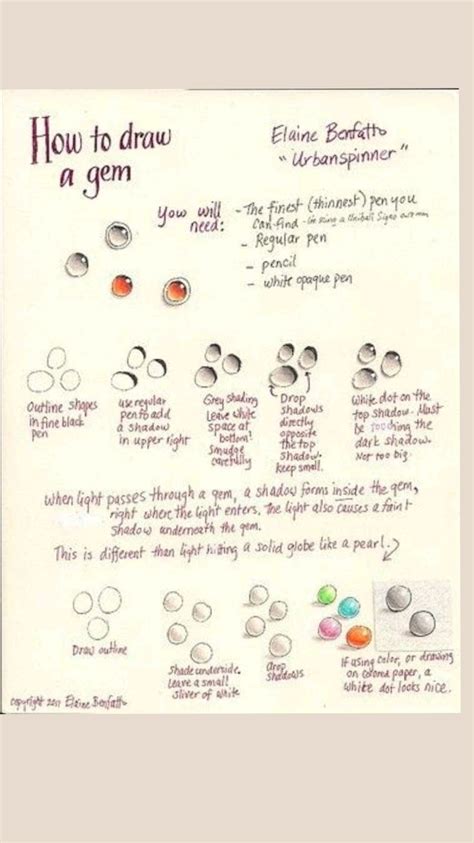 How to draw
a gem
Elaine Benfatto
"Urbanspinner"
You will
need:
- The finest (thinnest) pen you
can find - I'm using a Uniball Signo
- Regular pen
- pencil
- white opaque pen
Outline shapes
in fine black
pen
use regular
pen to add
a shadow
in upper right
Grey shading
Leave white
space at
bottom!
Smudge
carefully
Drop
shadows
directly
opposite
the top
shadow.
keep small.
White dot on the
top shadow. Must
be touching the
dark shadow.
Not too big.
When light passes through a gem, a shadow forms inside the gem,
right where the light enters. The light also causes a faint
shadow underneath the gem.
This is different than light hitting a solid globe like a pearl.
Draw outline
Shade underside.
Leave a small
sliver of white
drop
shadows
If using color, or drawing
on colored paper, a
white dot looks nice.
copyright 2011 Elaine Benfatto